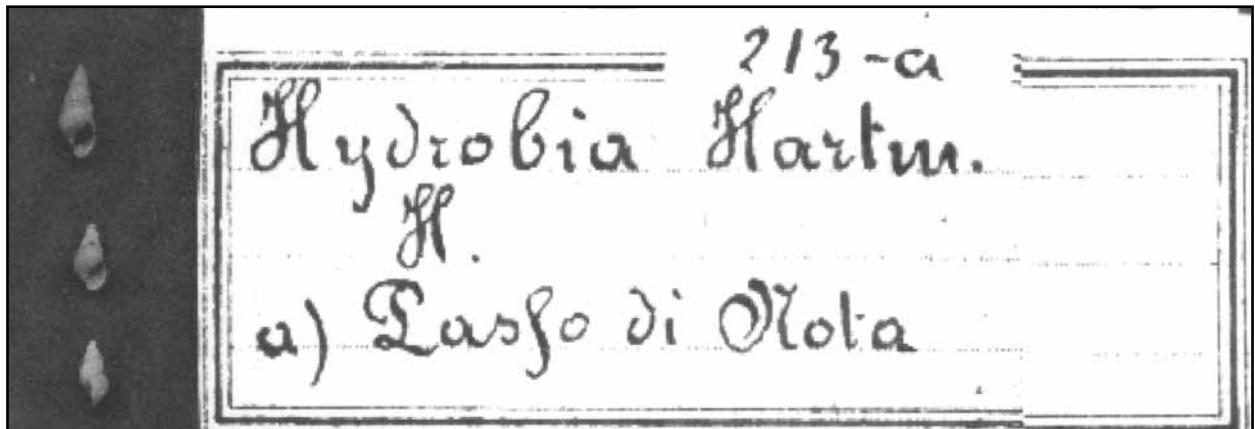 213-a
Hydrobia Hartm.
H.
a) Passo di Nota